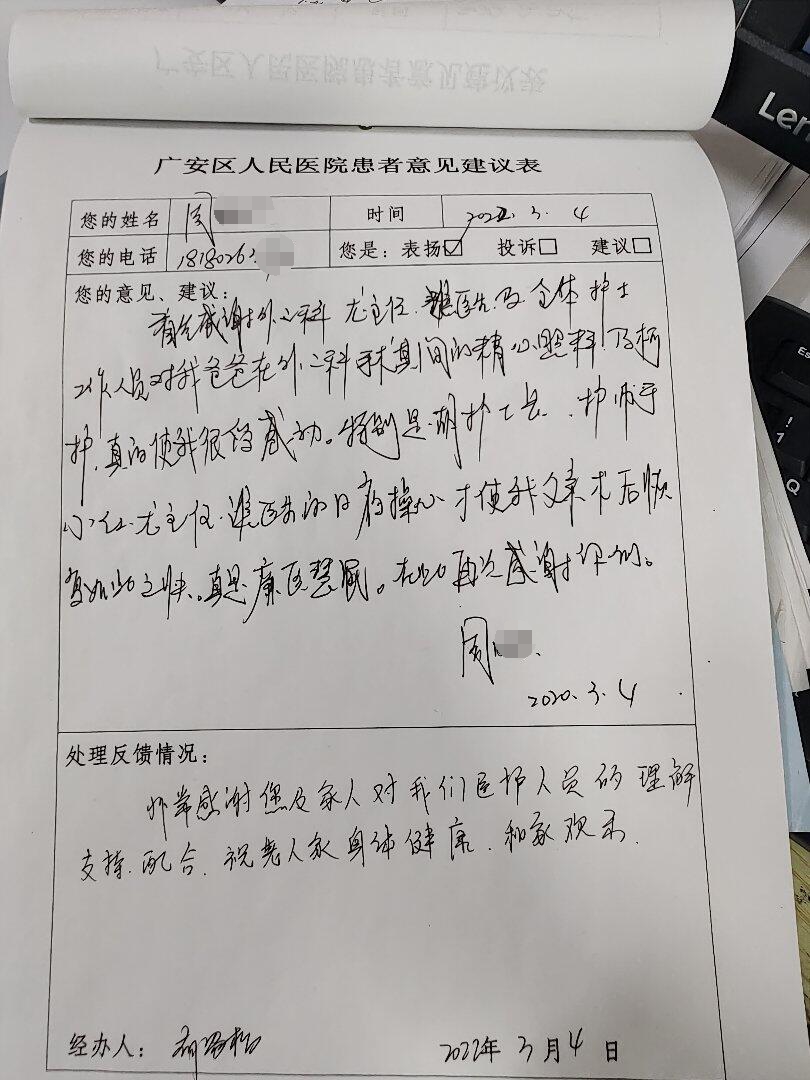 广安区人民医院患者意见建议表
您的姓名 周 时间 2022.3.4
您的电话 1818026 您是：表扬☑ 投诉□ 建议□
您的意见、建议：
首先感谢外二科尤主任、谯医生及全体护士
工作人员对我爸爸在外二科手术期间的精心照料及
护，真的使我很受感动。特别是胡护士长、护师
小红、尤主任、谯医生的日夜操心才使我父亲术后恢
复如此之快。真是康医慧民。在此再次感谢你们。
周
2020.3.4
处理反馈情况：
非常感谢您及家人对我们医护人员的理解
支持、配合、祝老人家身体健康、和家欢乐.
经办人： 2022年3月4日
Len
Q
1
!